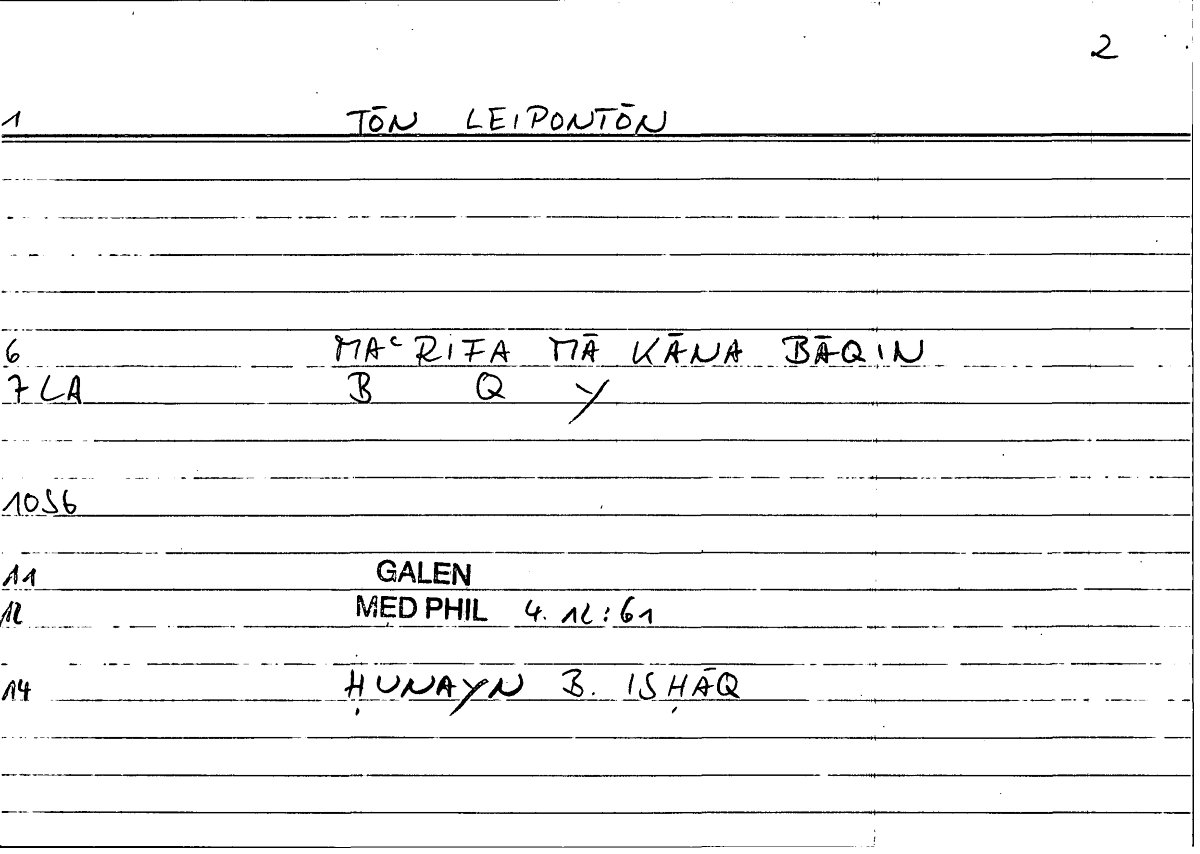 2
1 TŌN LEIPONTŌN
6 MAʿRIFA MĀ KĀNA BĀQIN
7 LA B Q Y
10S6
11 GALEN
12 MED PHIL 4. 12:61
14 ḤUNAYN B. ISḤĀQ